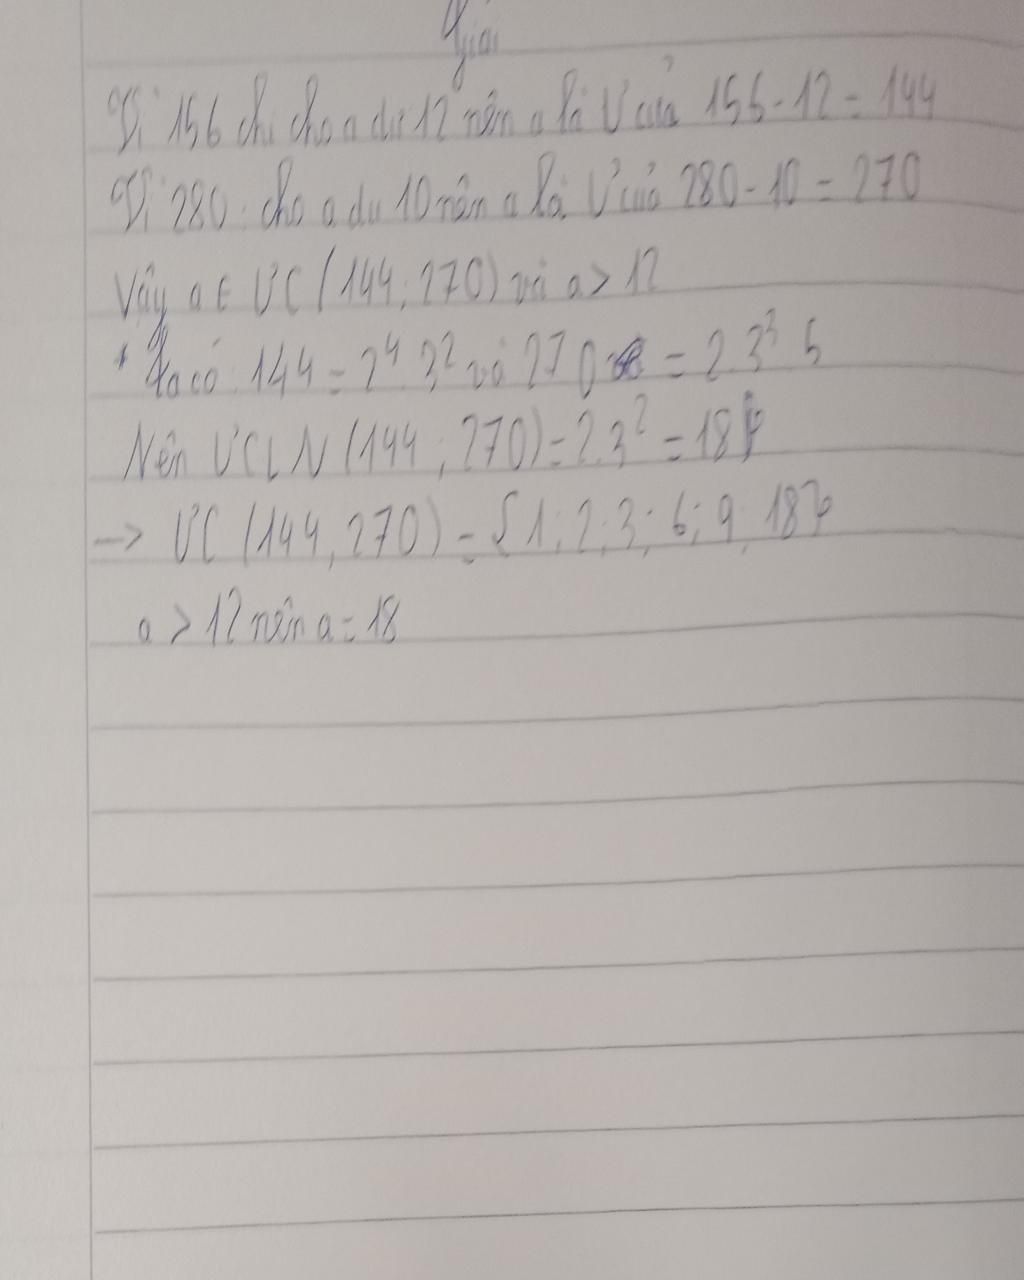 Giải
Vì 156 chi cho a dư 12 nên a là Ư của 156 - 12 = 144
Vì 280 : cho a dư 10 nên a là Ư của 280 - 10 = 270
Vậy a ∈ ƯC (144, 270) và a > 12
* Ta có : 144 = 2⁴. 3² và 270 = 2. 3³ 5
Nên ƯCLN (144 ; 270) = 2.3² = 18
-> ƯC (144, 270) = {1; 2; 3; 6; 9; 18}
a > 12 nên a = 18